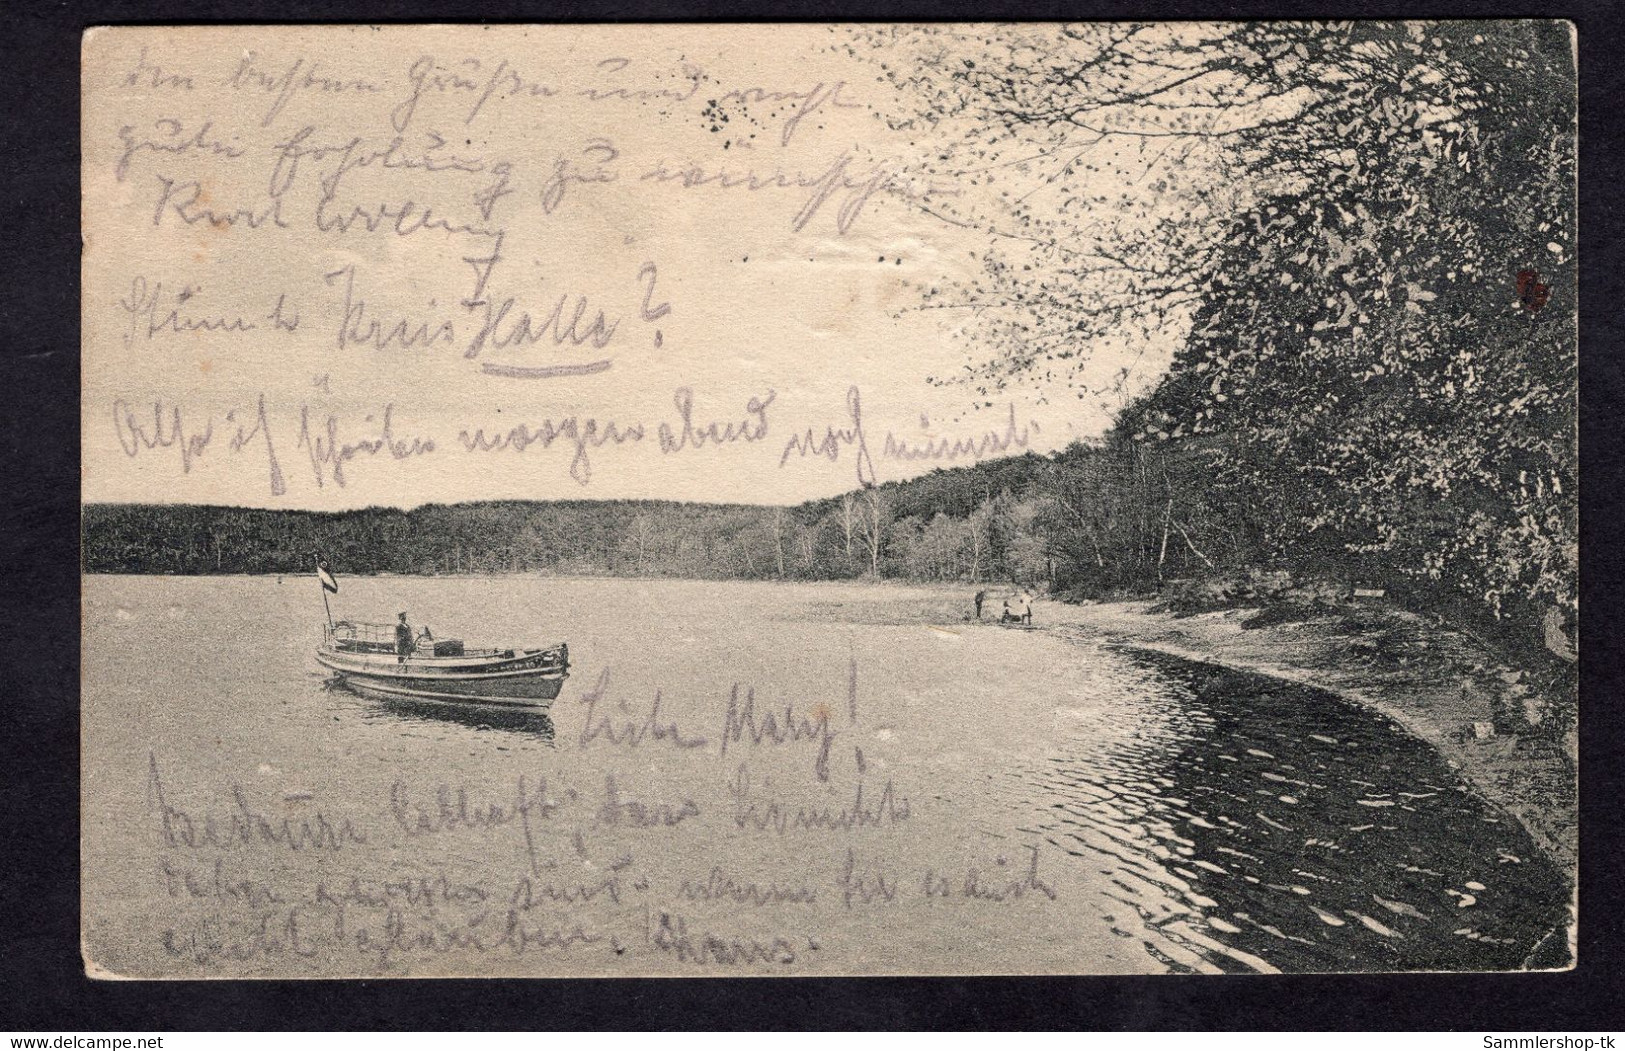 den besten Grüßen und recht
gute Erholung zu wünschen
Kurt
Stimmt Kreis Halle?
Also ich schreibe morgen abend noch einmal.
Liebe Mary!
Bedaure lebhaft, dass Sie nicht
sind. wenn Sie es auch
nicht glauben. Hans.
www.delcampe.net
Sammlershop-tk